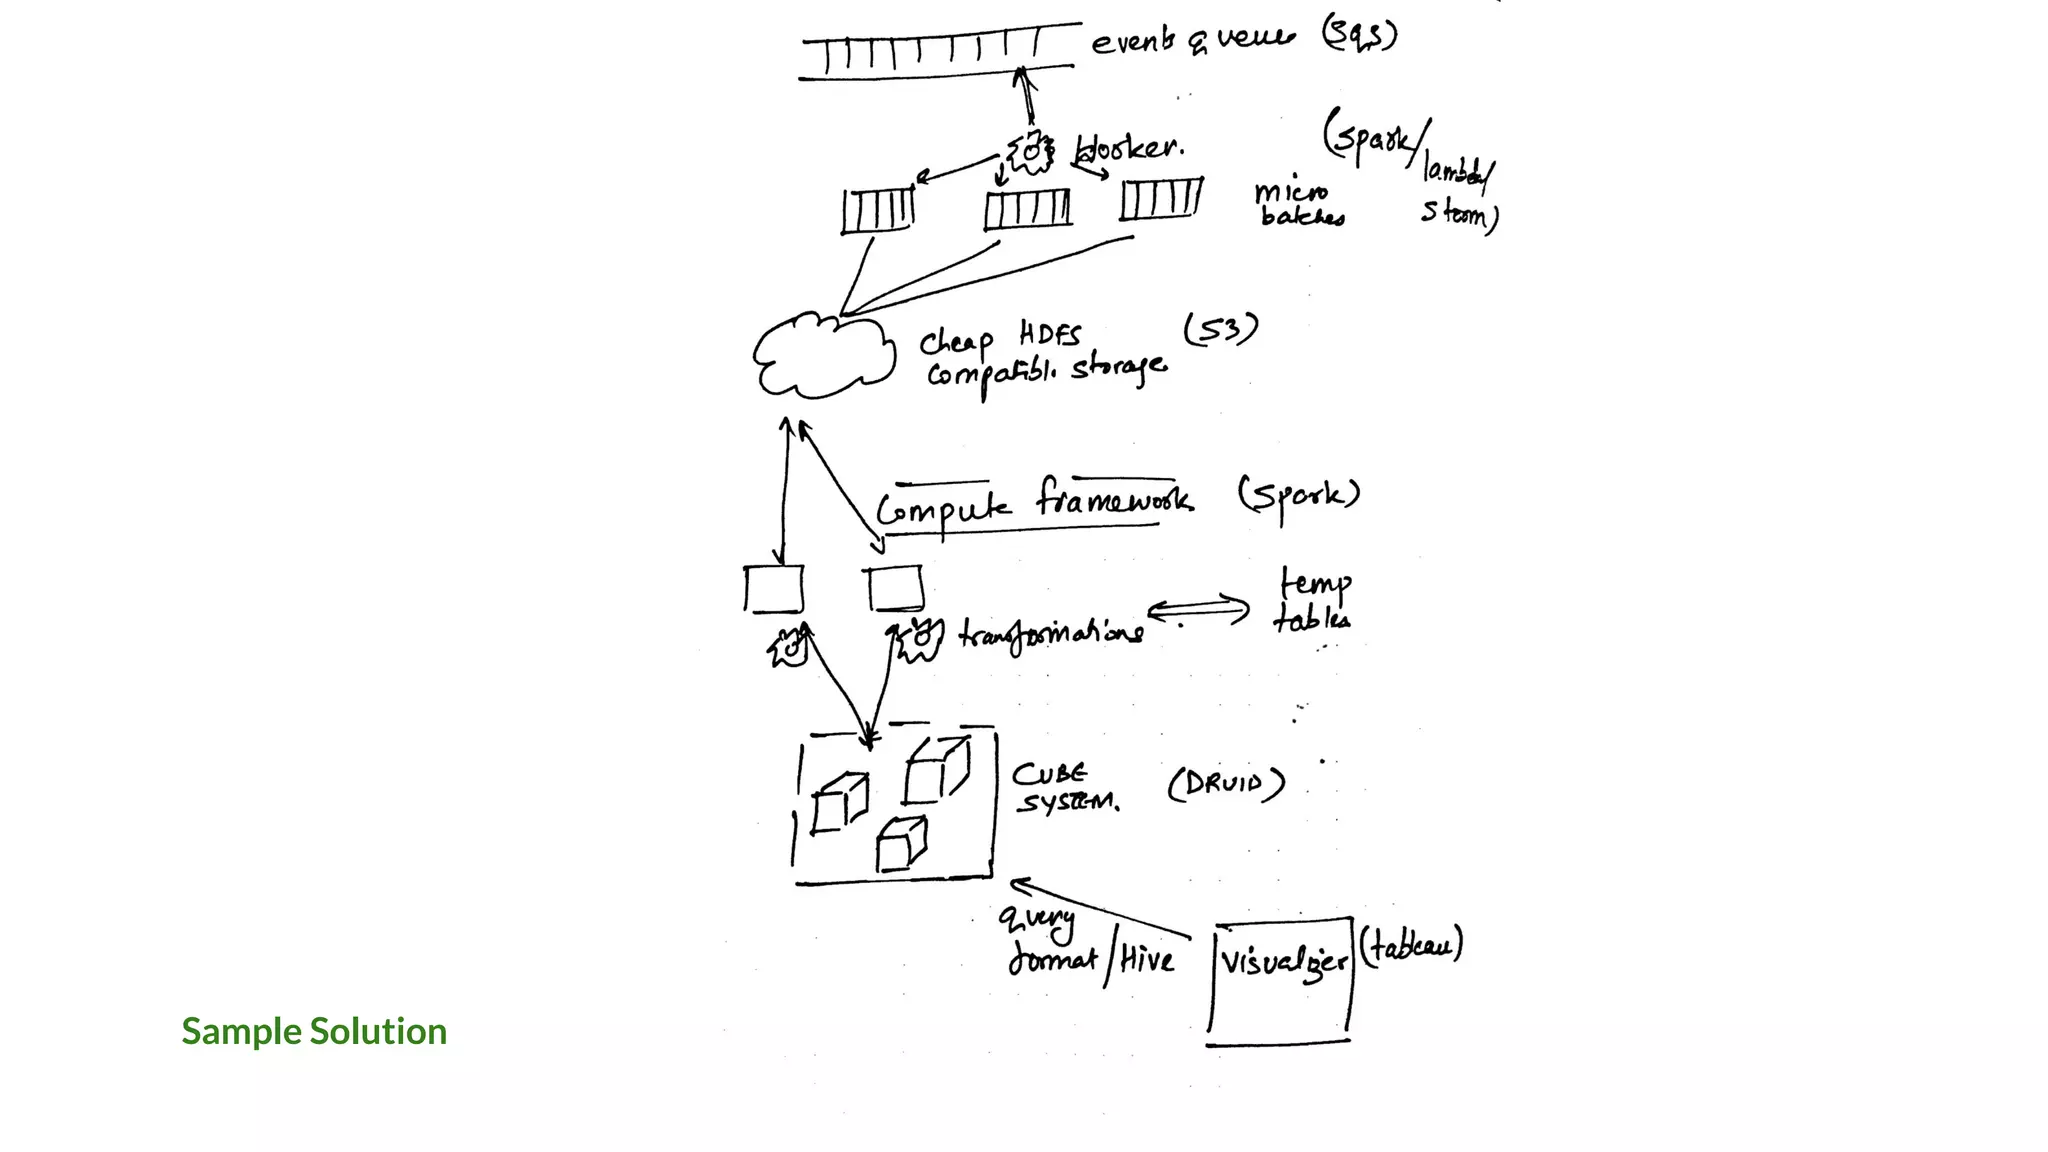 events queue (SQS)
Worker.
(spark/
lambda/
storm)
micro
batches
cheap HDFS (S3)
compatible storage
compute framework (spark)
temp
tables
transformations
CUBE
SYSTEM. (DRUID)
query
format/Hive
visualizer (tableau)
Sample Solution